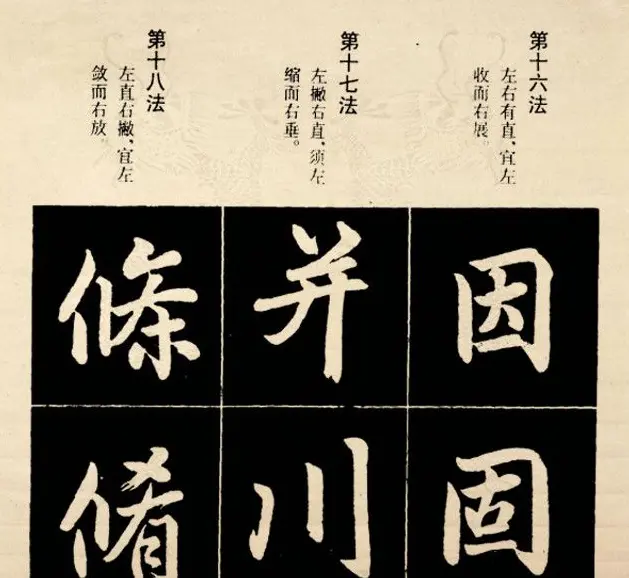 第十六法
左右有直，宜左
收而右展。
因
固
第十七法
左撇右直，须左
缩而右垂。
并
川
第十八法
左直右撇，宜左
敛而右放。
條
脩